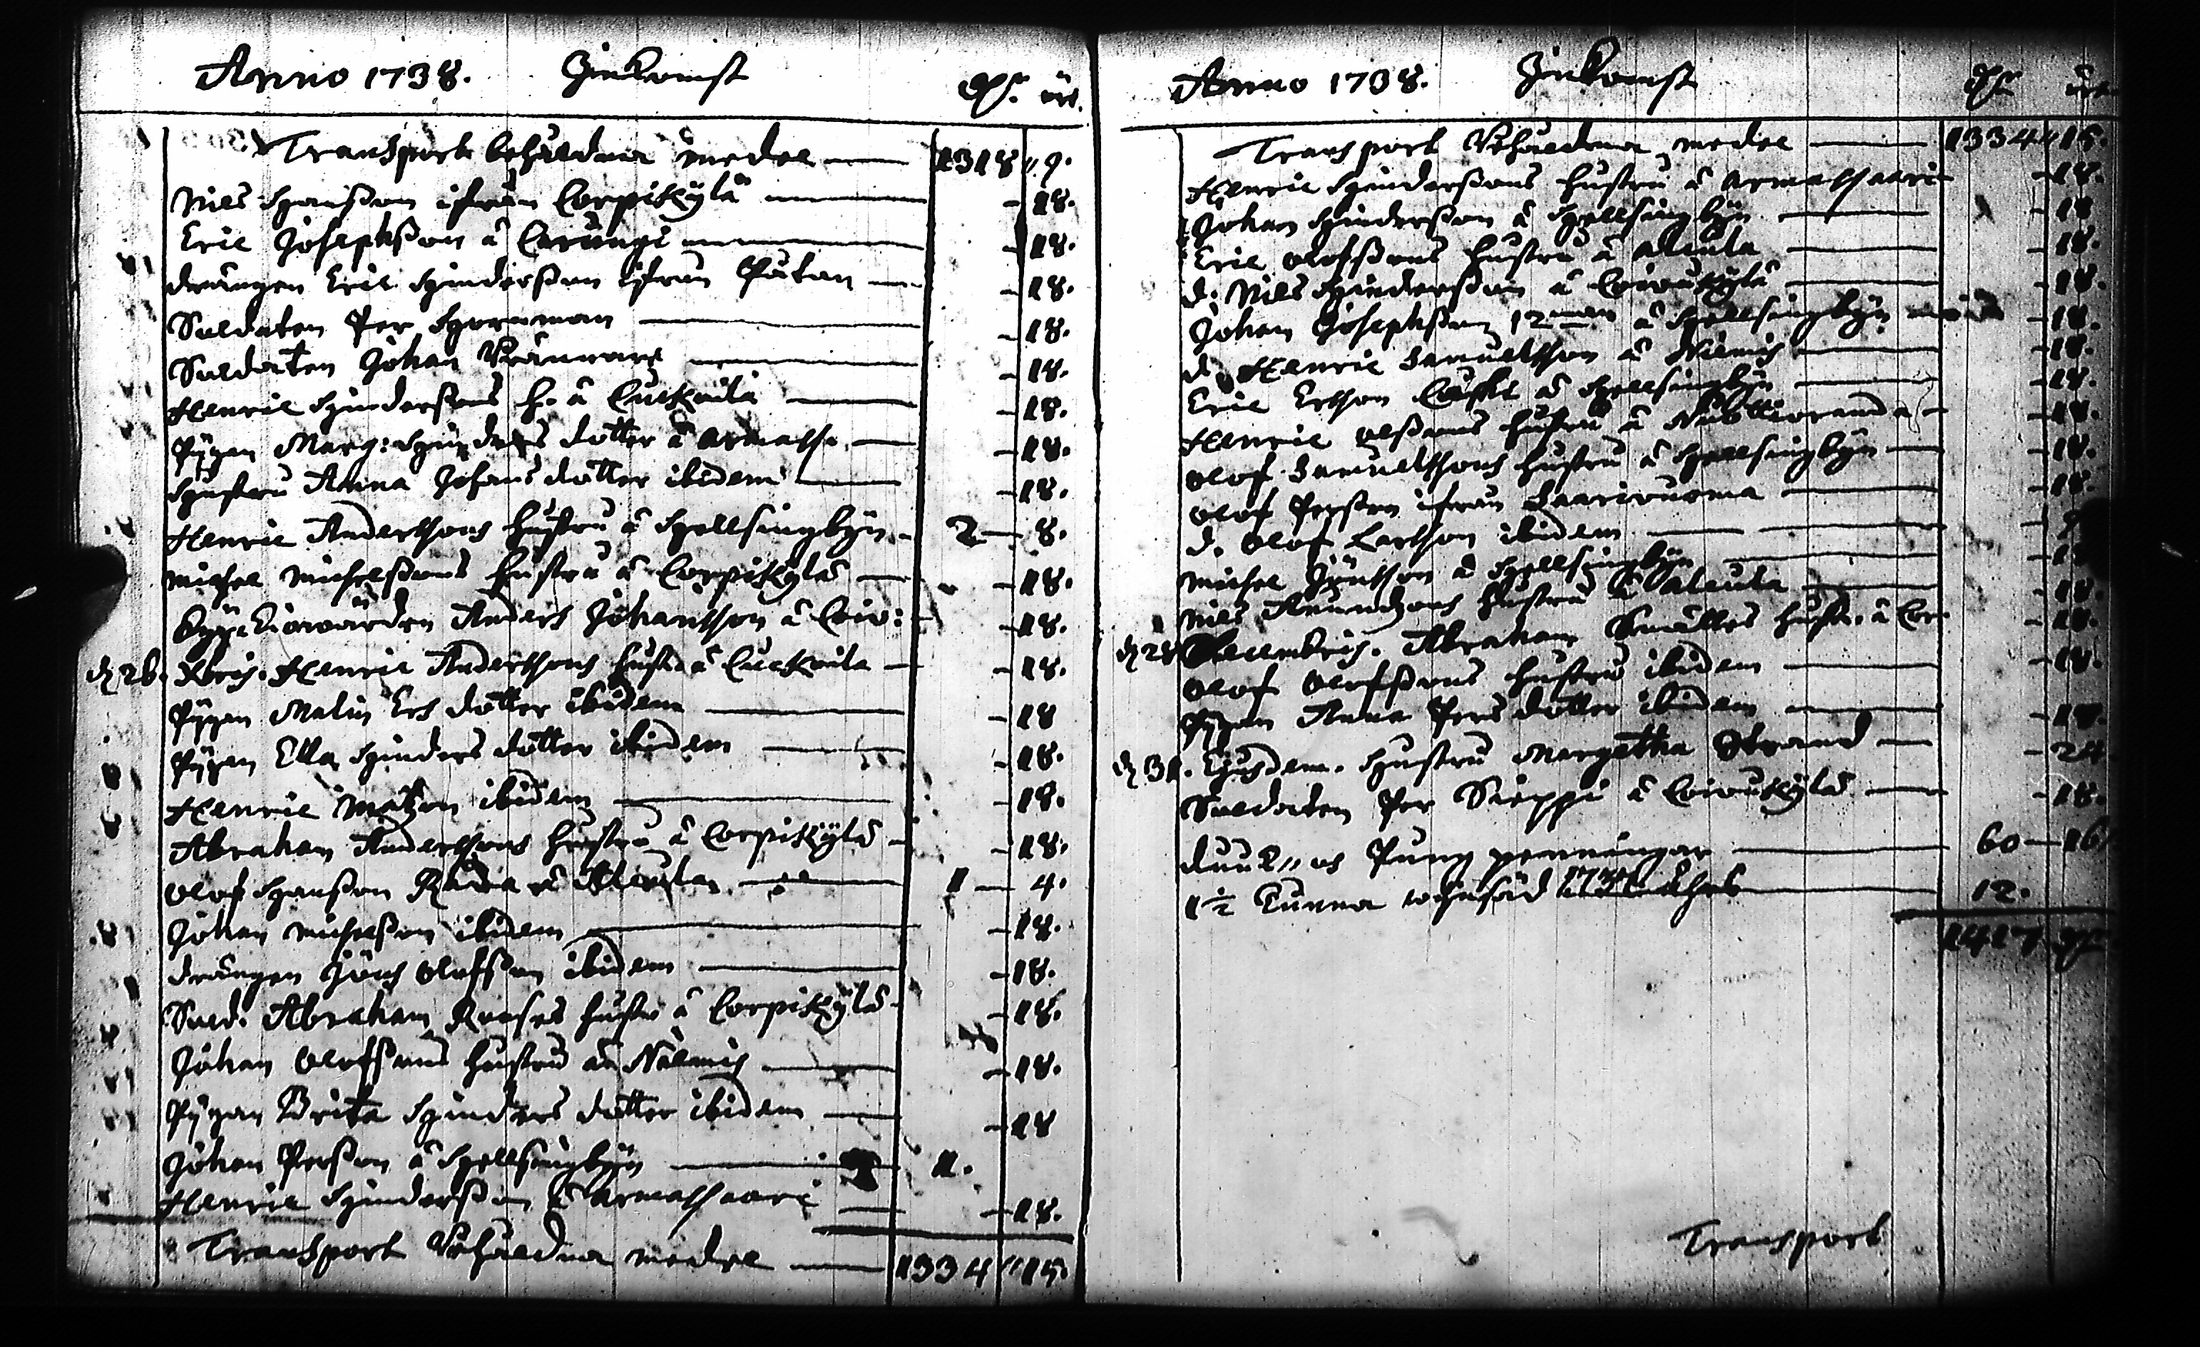 Anno 1738. Inkomst dr. öre.
Transport behåldna medel 1318 " 9.
Nils Hansson ifrån Corpikylä - 18.
Eric Josephsson å Carungi - 18.
drängen Eric Hindersson ifrån - 18.
Soldaten Per Hornman - 18.
Soldaten Johan - 18.
Henric Hinderssons h. å Cuckoila - 18.
Pigan Marg: Hinders dotter å Armatsa. - 18.
Hustru Anna Johans dotter ibidem - 18.
Henric Anderssons hustru å Hellsingbyn - 2 - 8.
Michel Michelssons hustru å Corpikylä - 18.
Anders Johansson å Coiv: - 18.
d. 26. Xbris. Henric Anderssons hustr. å Cuckoila - 18.
Pigan Malin Ers dotter ibidem - 18
Pigan Ella Hinders dotter ibidem - 18.
Henric Matzon ibidem - 18.
Abraham Anderssons hustru å Corpikylä - 18.
Olof Hansson å Alcula 1 - 4.
Johan Michelsson ibidem - 18.
drängen Jöns Olofsson ibidem - 18.
Sold. Abraham hustru å Corpikylä - 18.
Johan Olofssons hustru å Niemis - 18.
Pigan Brita Hinders dotter ibidem - 18
Johan Persson å Hellsingbyn 1.
Henric Hindersson å Armassaari - 18.
Transport behåldna medel 1334 " 15.
Anno 1738. Inkomst dr öre
Transport behåldna medel 1334 " 15.
Henric Hinderssons hustru å Armassaari - 18.
Johan Hindersson å Hellsingbyn - 18
Eric Olofssons hustru å Alcula - 18.
d. Nils Hindersson å Coivukylä - 18.
Johan Josephsson 12 man å Hellsingbyn - 18.
d. Henric Samuelsson å Niemis - 18.
Eric Ersson å Hellsingbyn - 18.
Henric Olssons hustru å - 18.
Olof Samuelssons hustru å Hellsingbyn - 18.
Olof Persson ifrån Saarivuoma - 18.
d. Olof Larsson ibidem
Michel Jönsson å Hellsingbyn
Nils hustru å Alcula - 18.
d. 28 Decembris. Abraham hustr. å - 18.
Olof Olofssons hustru ibidem - 18.
Pigan Anna Pers dotter ibidem - 18.
d. 31. Ejusdem. Hustru Margetha Strand - 24
Soldaten Per Sieppi å Coivukylä - 18.
och Pung penningar 60 - 16.
1 1/2 Tunna 1737 åhrs 12.
1417
Transport